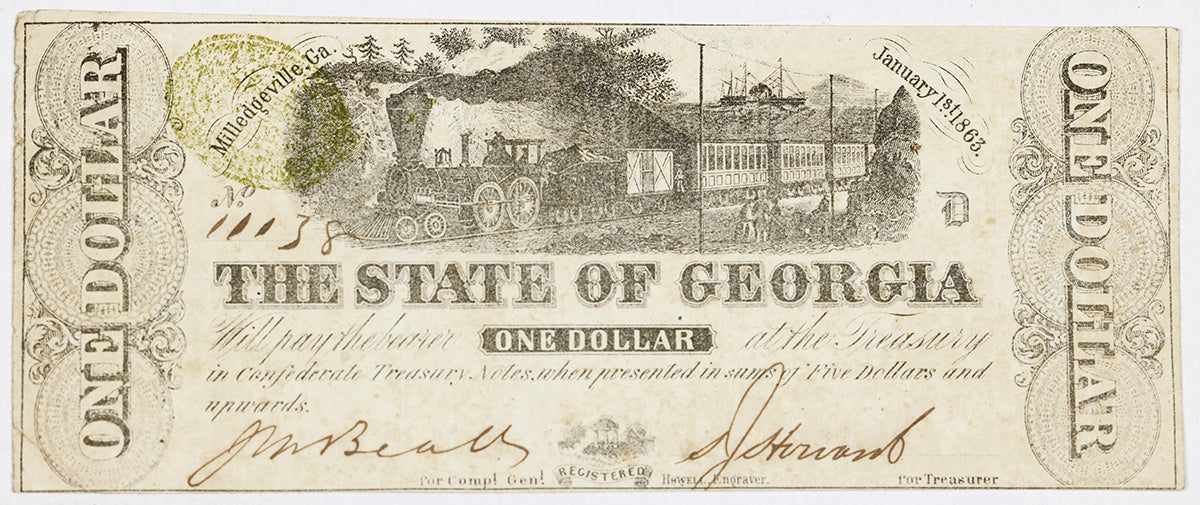 ONE DOLLAR
Milledgeville, Ga.
January 1st, 1863.
ONE DOLLAR
No.
11138
D
THE STATE OF GEORGIA
Will pay the bearer ONE DOLLAR at the Treasury
in Confederate Treasury Notes, when presented in sums of Five Dollars and
upwards.
Beall
Howard
for Compt Genl REGISTERED Howell, Engraver. for Treasurer